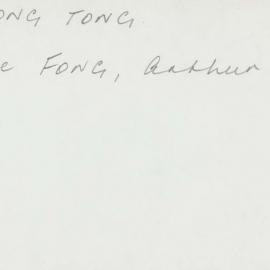 ONG TONG
e FONG, Arthur